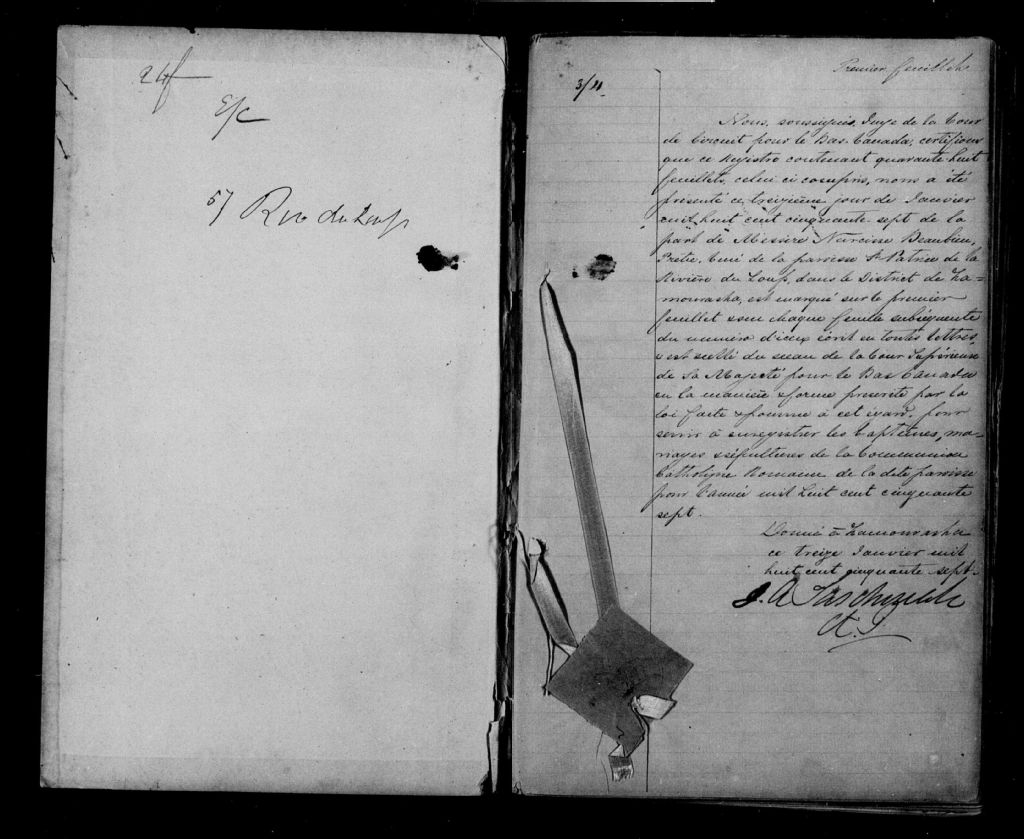 24f
E/C
57 Riv du Loup
Premier feuillet
3/11.
Nous, soussigné, Juge de la Cour
de Circuit pour le Bas-Canada, certifions
que ce Registre contenant quarante huit
feuillets, celui ci compris, nous a été
présenté ce treizième jour de Janvier
mil huit cent cinquante-sept de la
part de Messire Narcisse Beaubien,
Prêtre, Curé de la paroisse St Patrice de la
Rivière du Loup, dans le District de Ka=
mouraska, est marqué sur le premier
feuillet sur chaque feuille subséquente
du numéro d'iceux écrit en toutes lettres,
& est scellé du sceau de la Cour Supérieure
de Sa Majesté pour le Bas Canada
en la manière & forme prescrite par la
loi faite & pourvue à cet égard, pour
servir à enregistrer les baptêmes, ma=
riages & sépultures de la Communion
Catholique Romaine de la dite paroisse
pour l'année mil huit cent cinquante
sept.
Donné à Kamouraska
ce treize Janvier mil
huit cent cinquante-sept.
J. A Taschereau